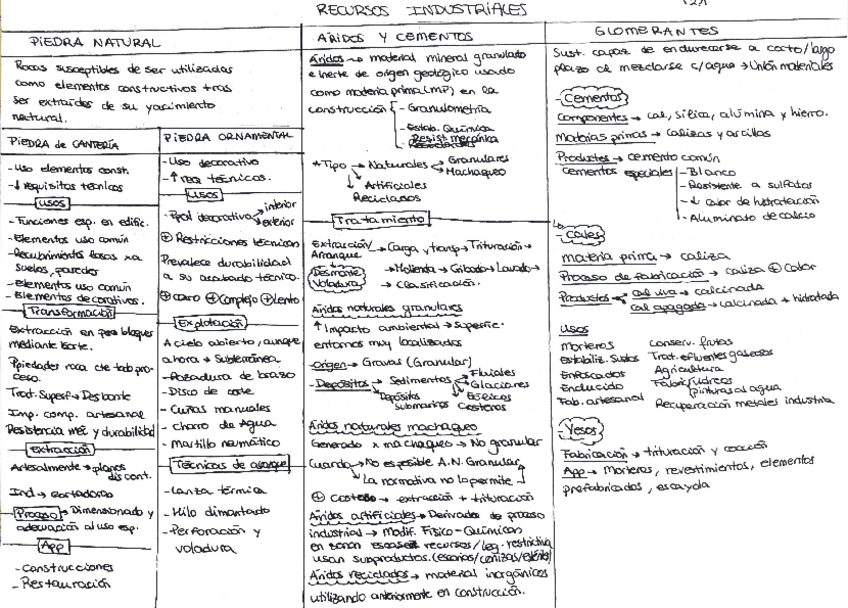 RECURSOS INDUSTRIALES
PIEDRA NATURAL
Rocas susceptibles de ser utilizadas
como elementos constructivos tras
ser extraídas de su yacimiento
natural.
PIEDRA de CANTERÍA
-Uso elementos const.
-↓ requisitos técnicos
USOS
-Funciones esp. en edific.
-Elementos uso común
-Recubrimientos losas xa
suelos, paredes
-Elementos uso común
-Elementos decorativos.
Transformación
Extracción en bloques
mediante corte.
Ppiedades roca cte tob pro-
ceso.
Trat. Superf → Desbaste
Imp. comp. artesanal
Resistencia mec y durabilidad
Extracción
Artesalmente → planos
discont.
Ind → cortadoras
Proceso → Dimensionado y
adecuación al uso esp.
App
-Construcciones
-Restauración
PIEDRA ORNAMENTAL
-Uso decorativo
-↑ req técnicos.
USOS
-Ppal decorativo → interior
→ exterior
⊕ Restricciones técnicas
Prevalece durabilidad
a su acabado técnico.
⊕ caro ⊕ Complejo ⊕ Lento
Explotación
A cielo abierto, aunque
ahora → Subterránea.
-Rozadura de brazo
-Disco de corte
-Cuñas manuales
-Chorro de Agua
-Martillo neumático
Técnicas de arranque
-Lanza térmica
-Hilo diamantado
-Perforación y
voladura
ÁRIDOS Y CEMENTOS
Áridos → material mineral granulado
e inerte de origen geológico usado
como materia prima (MP) en la
construcción - Granulometría
-Estab. Química
Resist mecánica
*Tipo → Naturales → Granulares
→ Machaqueo
Artificiales
Reciclados
Tratamiento
Extracción/ → Carga y transp → Trituración →
Arranque
Desmonte → Molienda → Cribado → Lavado →
Voladura → Clasificación.
Áridos naturales granulares
↑ Impacto ambiental → Superfic.
entornos muy localizados
-Origen → Gravas (Granular)
-Depósitos → Sedimentos → Fluviales
→ Glaciares
Depósitos Eólicos
submarinos Costeros
Áridos naturales machaqueo
Generado x machaqueo → No granular
Cuando → No es posible A.N. Granular
→ La normativa no lo permite
⊕ Costoso → extracción + trituración
Áridos artificiales → Derivados de proceso
industrial → Modif. Físico-Químicas
en zonas escasez recursos/leg. restrictiva
usan subproductos. (escorias/cenizas/estéril)
Áridos reciclados → material inorgánicos
utilizando anteriormente en construcción.
GLOMERANTES
Sust. capaz de endurecerse a corto/largo
plazo al mezclarse c/agua → Unión materiales
-Cementos
Componentes → cal, sílica, alúmina y hierro.
Materias primas → calizas y arcillas
Productos → cemento común
cementos especiales - Blanco
-Resistente a sulfatos
-↓ calor de hidratación
-Aluminato de calcio
-Cales
materia prima → caliza
Proceso de fabricación → caliza ⊕ Calor
Productos → cal viva → calcinada
cal apagada → calcinada + hidratada
Usos
Morteros Conserv. frutas
Estabiliz. Suelos Trat. efluentes gaseosos
Enfoscados Agricultura
Enlucido
pinturas al agua
Fab. artesanal Recuperación metales industria
-Yesos
Fabricación → trituración y cocción
App → Morteros, revestimientos, elementos
prefabricados, escayola